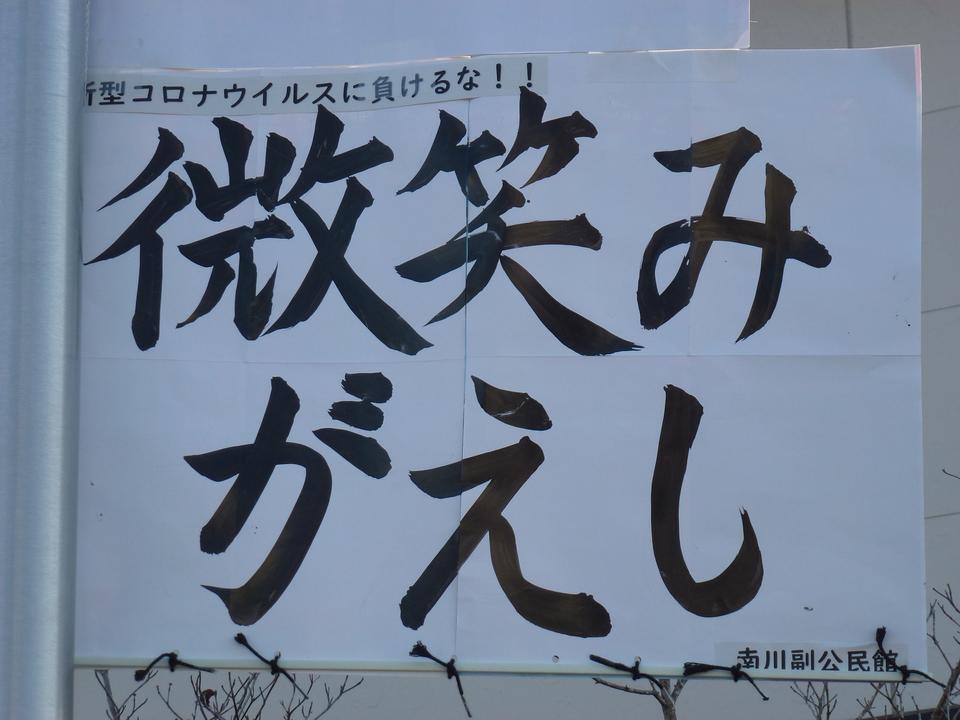 新型コロナウイルスに負けるな！！
微笑み
がえし
南川副公民館